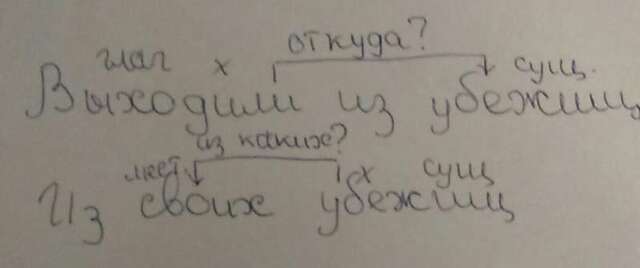 глаг х откуда? сущ.
Выходили из убежищ
из каких? 
мест х сущ
Из своих убежищ